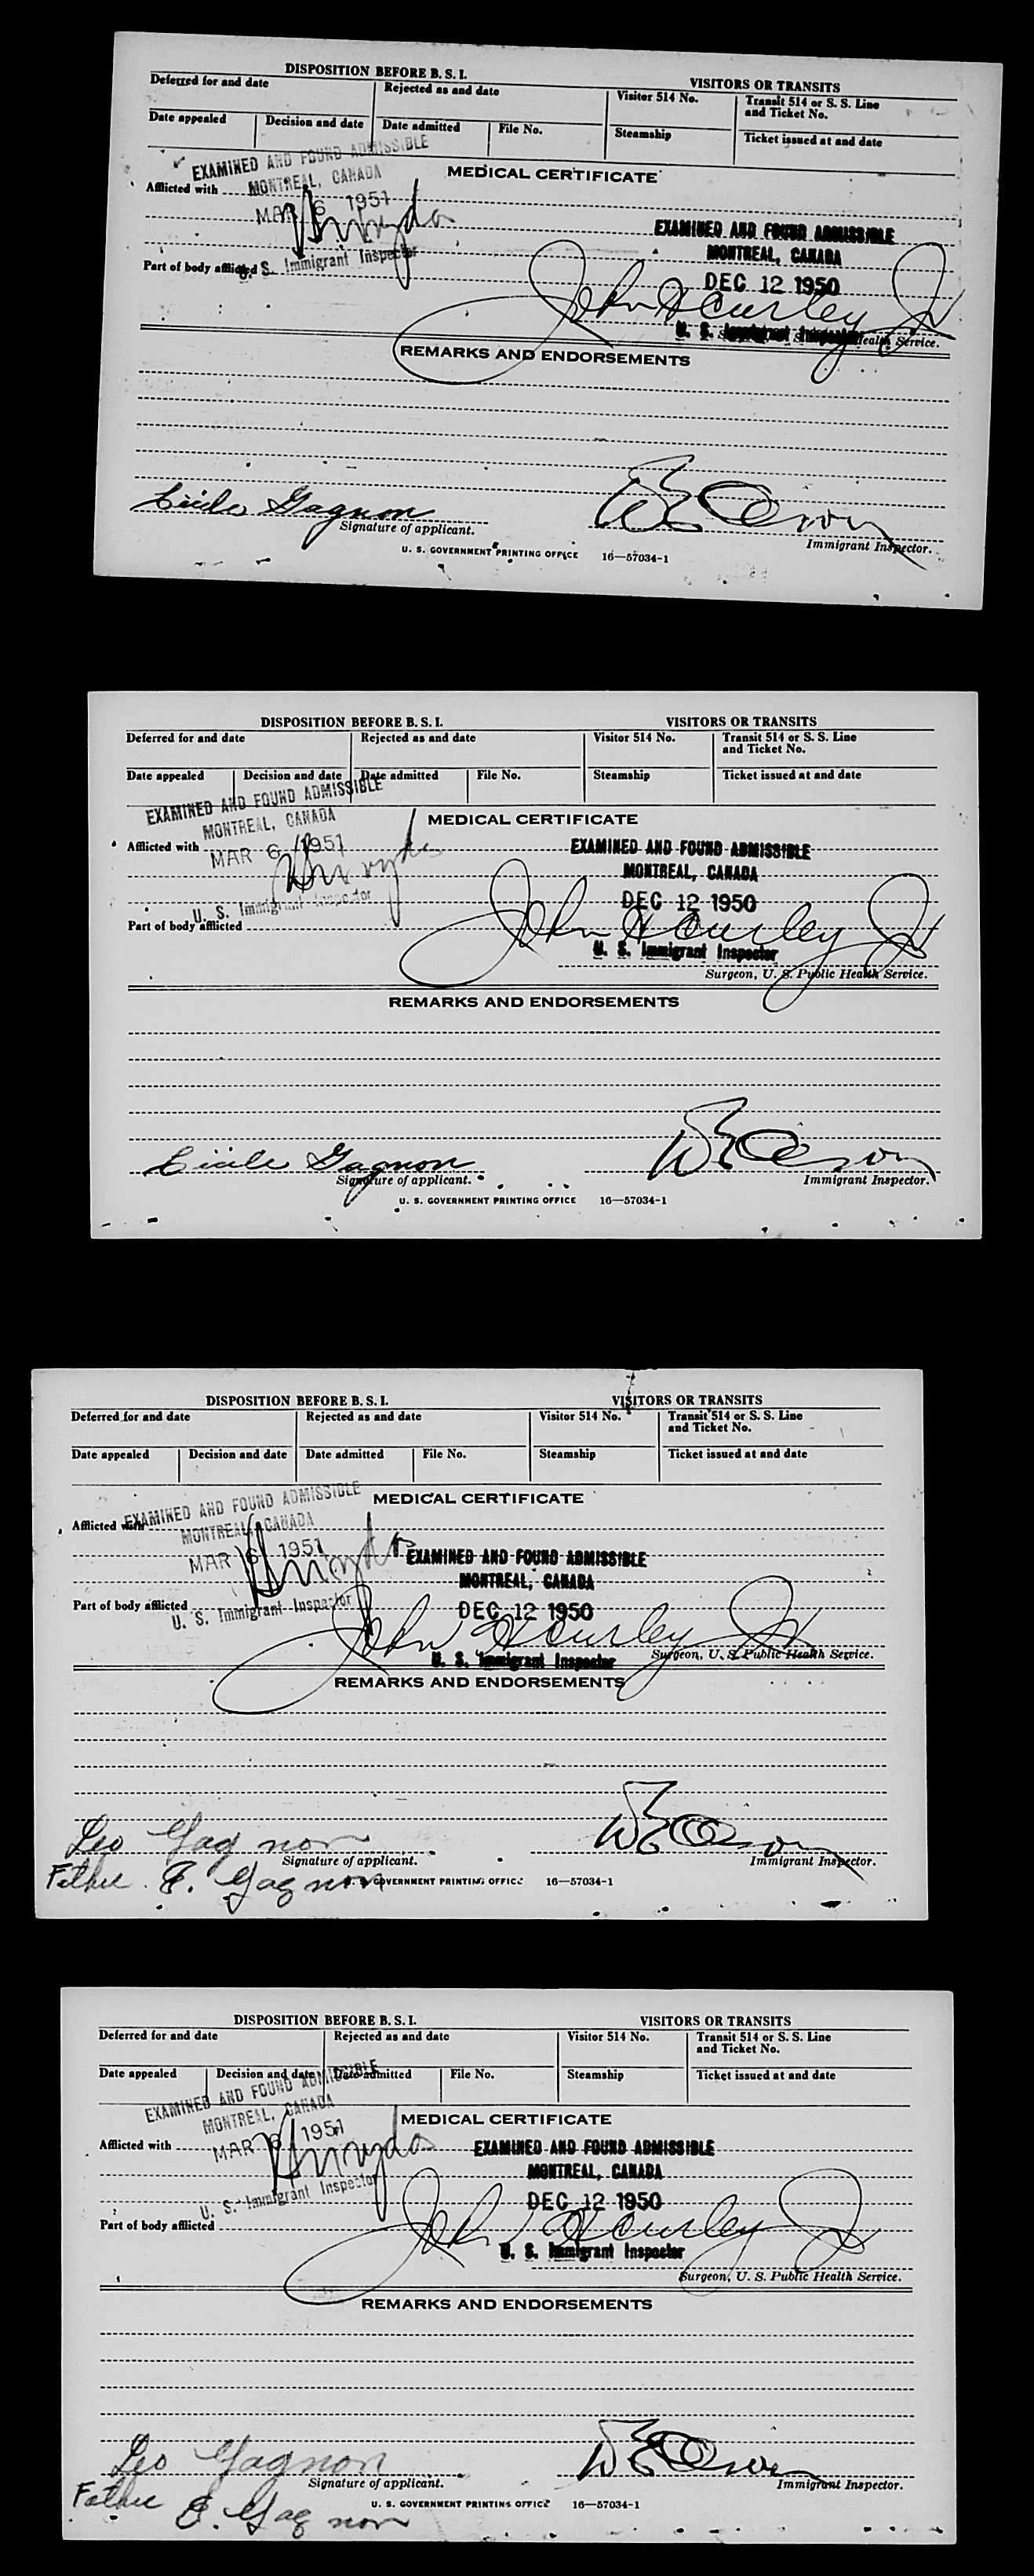 DISPOSITION BEFORE B. S. I. VISITORS OR TRANSITS
Deferred for and date Rejected as and date Visitor 514 No. Transit 514 or S. S. Line and Ticket No.
Date appealed Decision and date Date admitted File No. Steamship Ticket issued at and date
EXAMINED AND FOUND ADMISSIBLE
MEDICAL CERTIFICATE
MONTREAL, CANADA
Afflicted with
MAR 6 1951
EXAMINED AND FOUND ADMISSIBLE
MONTREAL, CANADA
U. S. Immigrant Inspector
Part of body afflicted
DEC 12 1950
John Hurley Jr
U. S. Immigrant Inspector
Health Service.
REMARKS AND ENDORSEMENTS
Cecile Gagnon
Signature of applicant. Immigrant Inspector.
U. S. GOVERNMENT PRINTING OFFICE 16—57034-1
DISPOSITION BEFORE B. S. I. VISITORS OR TRANSITS
Deferred for and date Rejected as and date Visitor 514 No. Transit 514 or S. S. Line and Ticket No.
Date appealed Decision and date Date admitted File No. Steamship Ticket issued at and date
EXAMINED AND FOUND ADMISSIBLE
MONTREAL, CANADA
MEDICAL CERTIFICATE
Afflicted with
MAR 6 1951
EXAMINED AND FOUND ADMISSIBLE
MONTREAL, CANADA
U. S. Immigrant Inspector
DEC 12 1950
Part of body afflicted
John Hurley Jr
U. S. Immigrant Inspector
Surgeon, U. S. Public Health Service.
REMARKS AND ENDORSEMENTS
Cecile Gagnon
Signature of applicant. Immigrant Inspector.
U. S. GOVERNMENT PRINTING OFFICE 16—57034-1
DISPOSITION BEFORE B. S. I. VISITORS OR TRANSITS
Deferred for and date Rejected as and date Visitor 514 No. Transit 514 or S. S. Line and Ticket No.
Date appealed Decision and date Date admitted File No. Steamship Ticket issued at and date
EXAMINED AND FOUND ADMISSIBLE
MEDICAL CERTIFICATE
Afflicted with
MONTREAL, CANADA
MAR 6 1951
EXAMINED AND FOUND ADMISSIBLE
MONTREAL, CANADA
Part of body afflicted
U. S. Immigrant Inspector
DEC 12 1950
John Hurley Jr
U. S. Immigrant Inspector
Surgeon, U. S. Public Health Service.
REMARKS AND ENDORSEMENTS
Leo Gagnon
Signature of applicant. Immigrant Inspector.
Father E. Gagnon
U. S. GOVERNMENT PRINTING OFFICE 16—57034-1
DISPOSITION BEFORE B. S. I. VISITORS OR TRANSITS
Deferred for and date Rejected as and date Visitor 514 No. Transit 514 or S. S. Line and Ticket No.
Date appealed Decision and date Date admitted File No. Steamship Ticket issued at and date
EXAMINED AND FOUND ADMISSIBLE
MONTREAL, CANADA
MEDICAL CERTIFICATE
Afflicted with
MAR 6 1951
EXAMINED AND FOUND ADMISSIBLE
MONTREAL, CANADA
U. S. Immigrant Inspector
DEC 12 1950
Part of body afflicted
John Hurley Jr
U. S. Immigrant Inspector
Surgeon, U. S. Public Health Service.
REMARKS AND ENDORSEMENTS
Leo Gagnon
Signature of applicant. Immigrant Inspector.
Father E. Gagnon
U. S. GOVERNMENT PRINTING OFFICE 16—57034-1